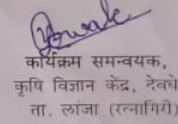 कार्यक्रम समन्वयक,
कृषि विज्ञान केंद्र, देवधे
ता. लांजा (रत्नागिरी)